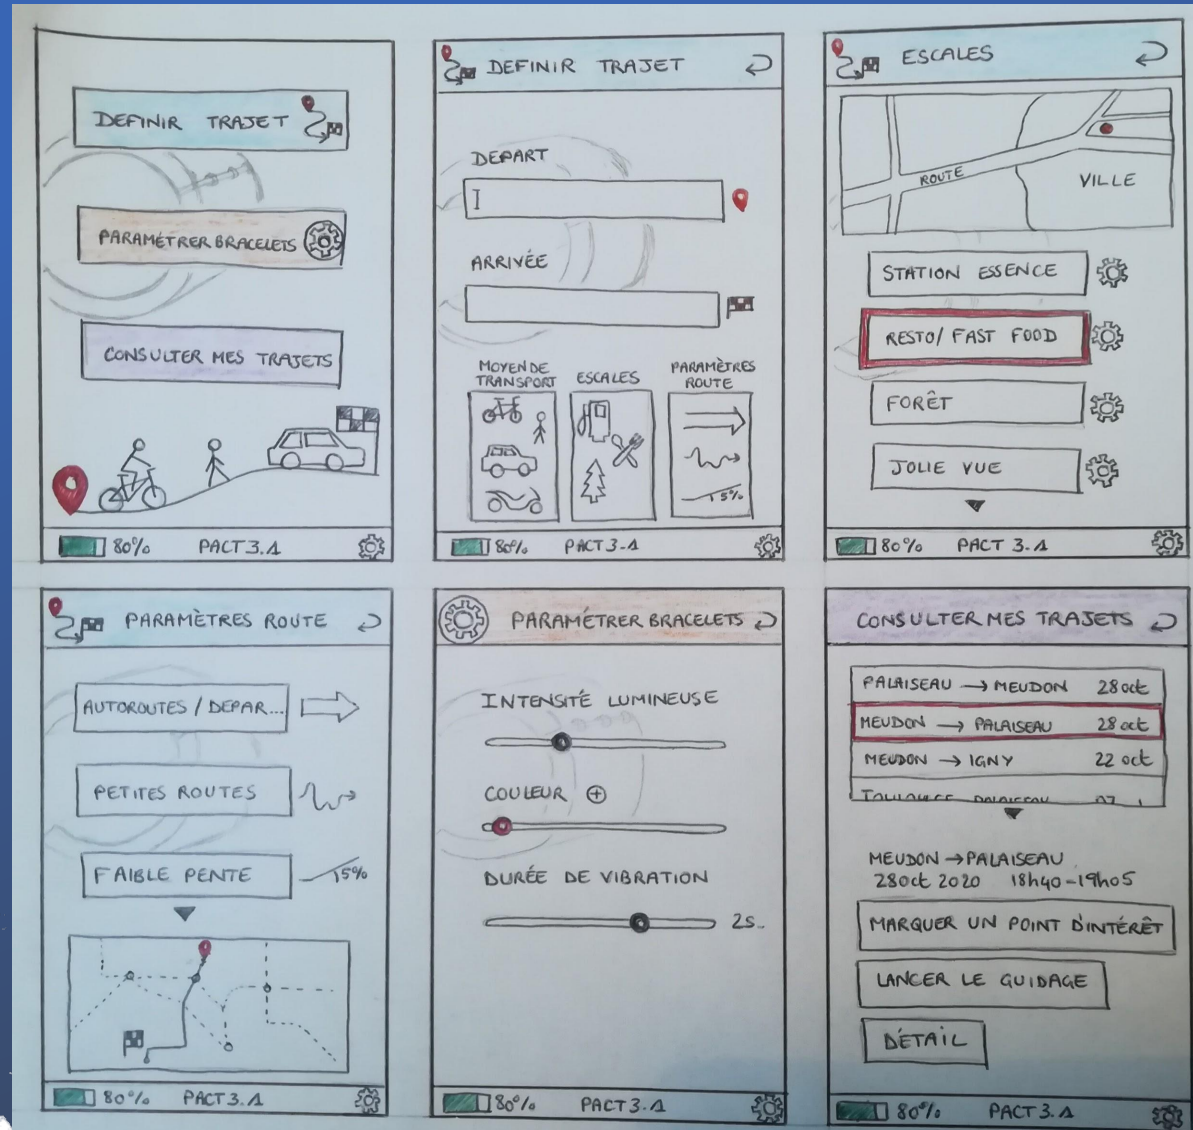 DEFINIR TRAJET
PARAMÉTRER BRACELETS
CONSULTER MES TRAJETS
80% PACT 3.1
DEFINIR TRAJET
DEPART
ARRIVÉE
MOYEN DE TRANSPORT
ESCALES
PARAMÈTRES ROUTE
15%
80% PACT 3.1
ESCALES
ROUTE
VILLE
STATION ESSENCE
RESTO/ FAST FOOD
FORÊT
JOLIE VUE
80% PACT 3.1
PARAMÈTRES ROUTE
AUTOROUTES / DEPAR...
PETITES ROUTES
FAIBLE PENTE
15%
80% PACT 3.1
PARAMÉTRER BRACELETS
INTENSITÉ LUMINEUSE
COULEUR
DURÉE DE VIBRATION
2s.
80% PACT 3.1
CONSULTER MES TRAJETS
PALAISEAU → MEUDON 28 oct
MEUDON → PALAISEAU 28 oct
MEUDON → IGNY 22 oct
MEUDON → PALAISEAU
28 oct 2020 18h40-19h05
MARQUER UN POINT D'INTÉRÊT
LANCER LE GUIDAGE
DÉTAIL
80% PACT 3.1